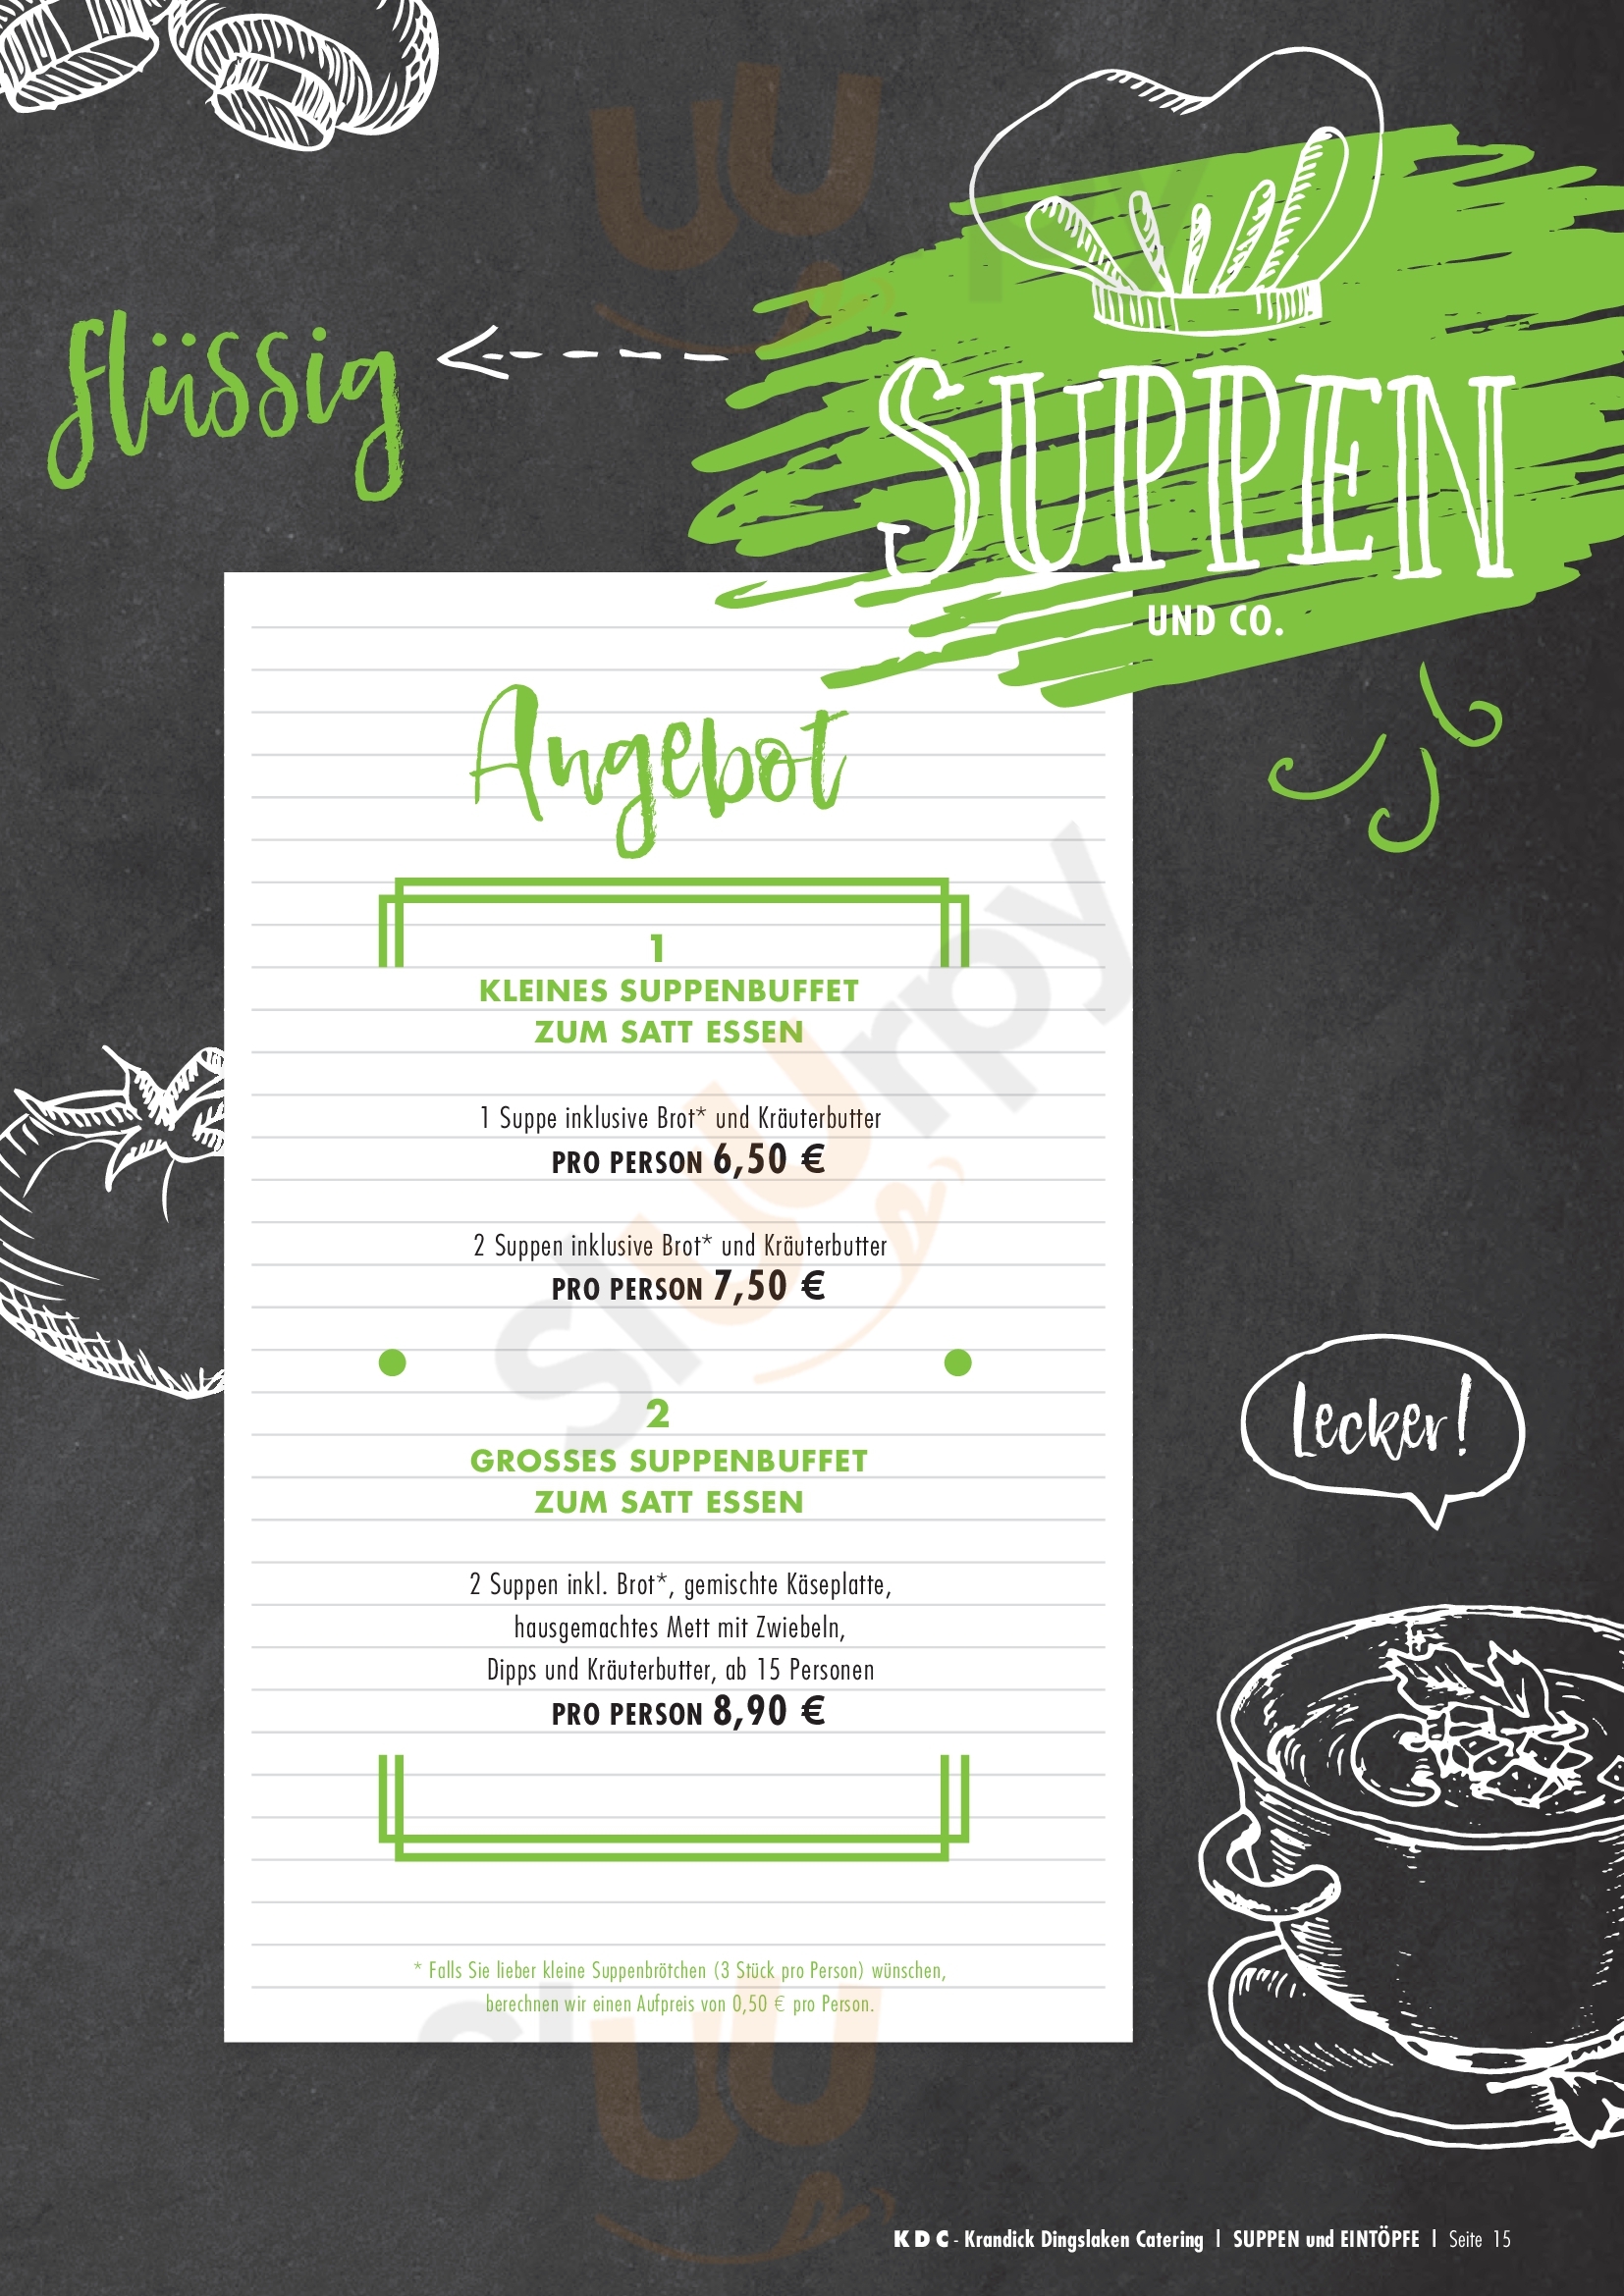 flüssig
SUPPEN
UND CO.
Angebot
1
KLEINES SUPPENBUFFET
ZUM SATT ESSEN
1 Suppe inklusive Brot* und Kräuterbutter
PRO PERSON 6,50 €
2 Suppen inklusive Brot* und Kräuterbutter
PRO PERSON 7,50 €
2
GROSSES SUPPENBUFFET
ZUM SATT ESSEN
2 Suppen inkl. Brot*, gemischte Käseplatte,
hausgemachtes Mett mit Zwiebeln,
Dipps und Kräuterbutter, ab 15 Personen
PRO PERSON 8,90 €
Lecker!
* Falls Sie lieber kleine Suppenbrötchen (3 Stück pro Person) wünschen,
berechnen wir einen Aufpreis von 0,50 € pro Person.
KDC - Krandick Dingslaken Catering | SUPPEN und EINTÖPFE | Seite 15
slurpy